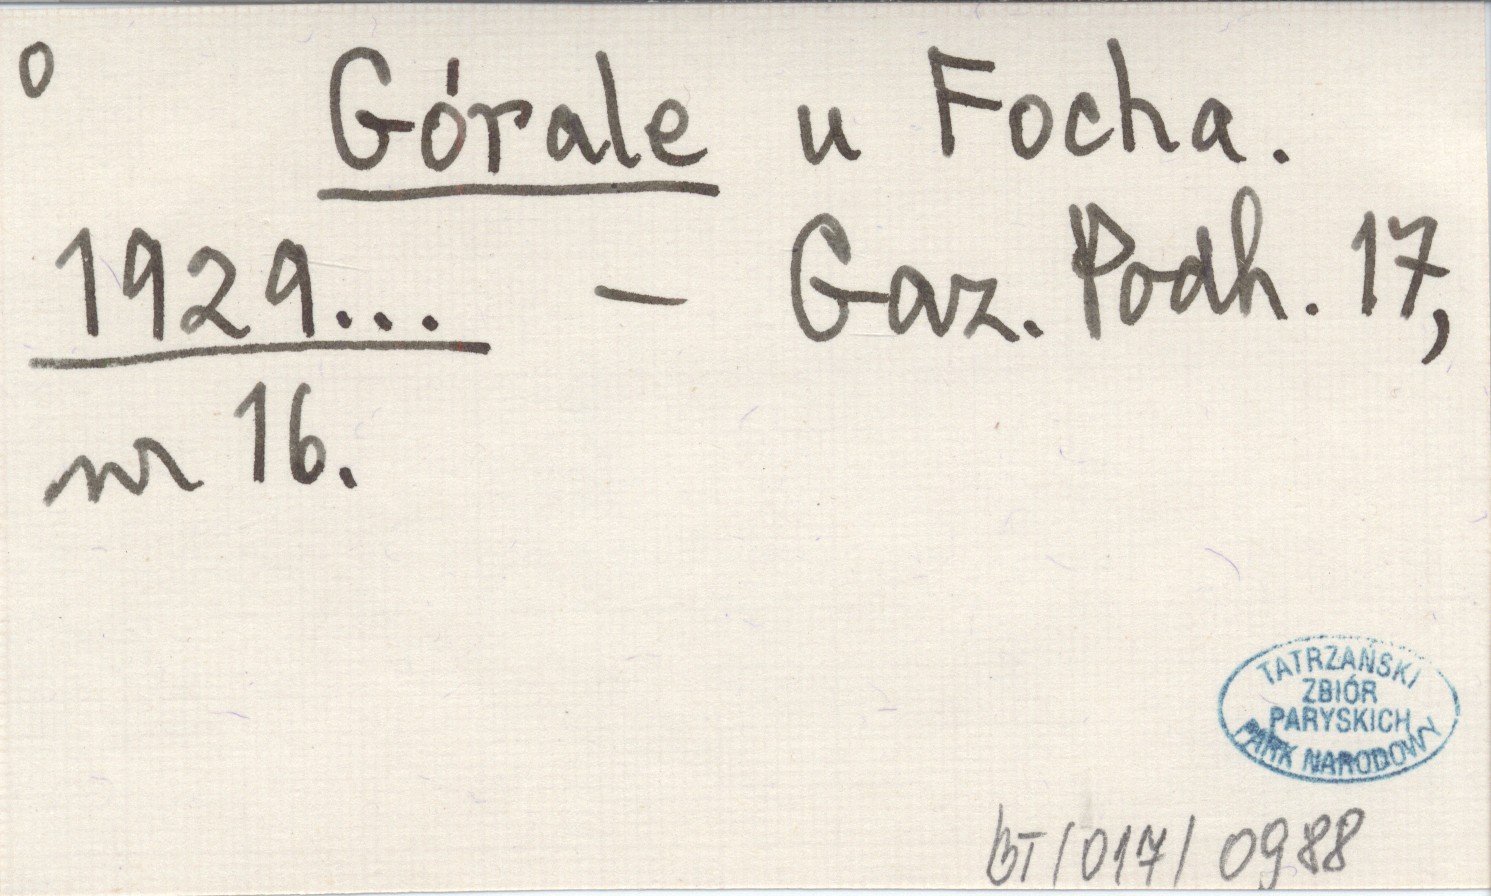 o
Górale u Focha.
1929... – Gaz. Podh. 17,
nr 16.
TATRZAŃSKI
ZBIÓR
PARYSKICH
PARK NARODOWY
BT/017/0988